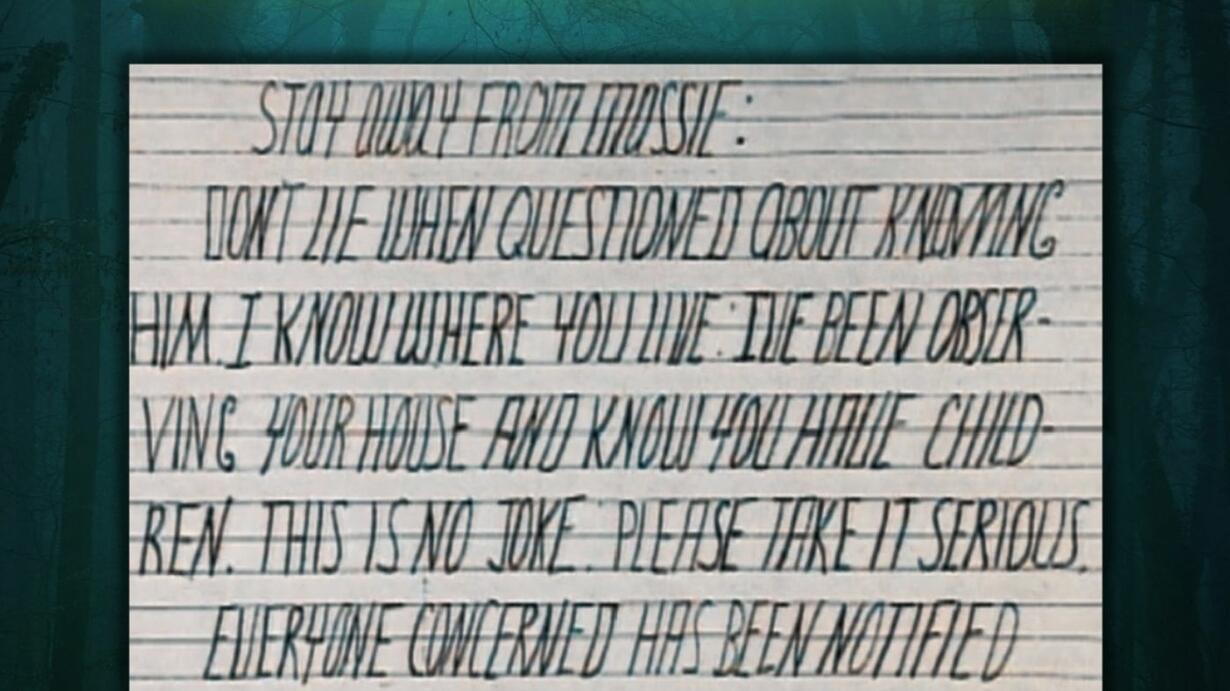 STAY AWAY FROM MASSIE:
DON'T LIE WHEN QUESTIONED ABOUT KNOWING
HIM. I KNOW WHERE YOU LIVE: I'VE BEEN OBSER-
VING YOUR HOUSE AND KNOW YOU HAVE CHILD-
REN. THIS IS NO JOKE. PLEASE TAKE IT SERIOUS.
EVERYONE CONCERNED HAS BEEN NOTIFIED